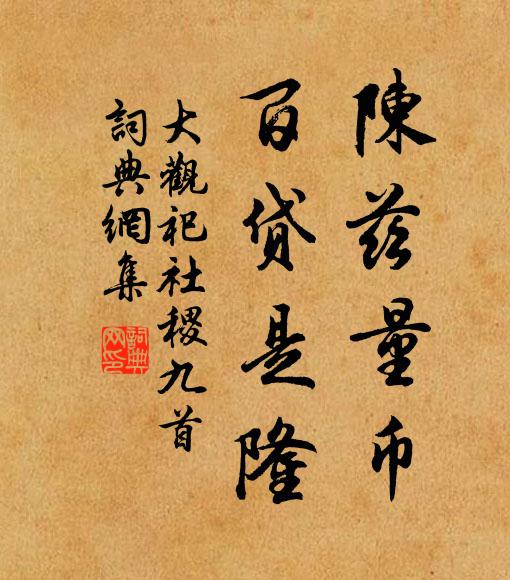 陳茲量币
百貸是隆
大觀祀社稷九首
詞典網集
詞典
网印